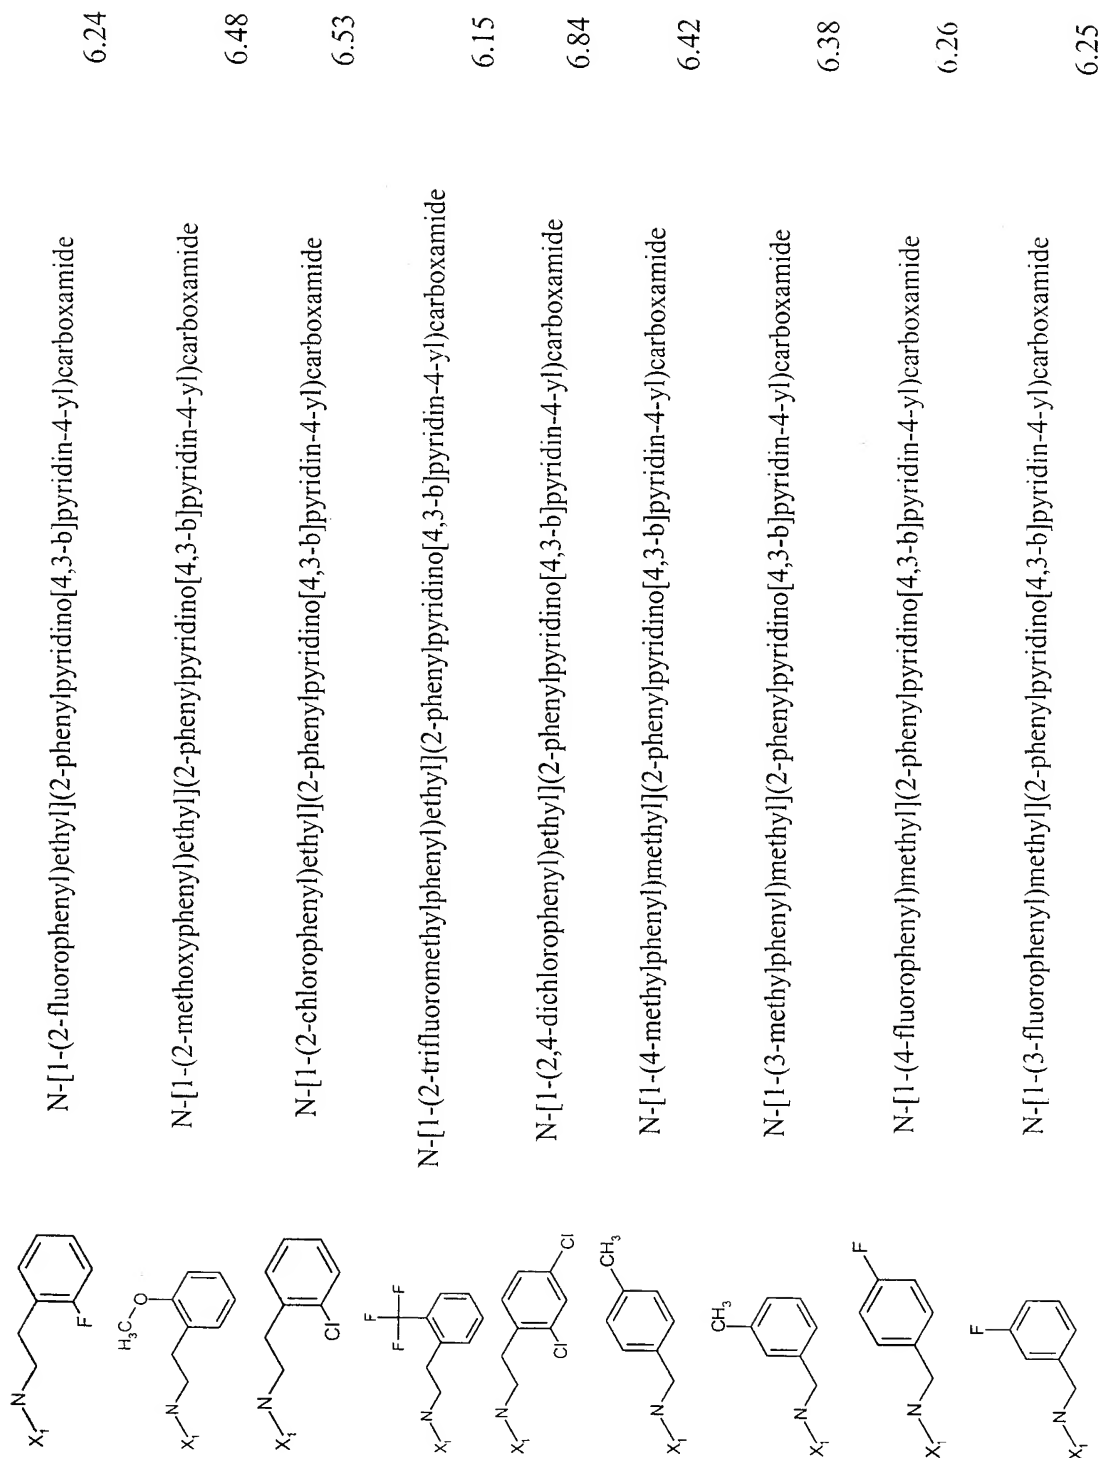 N-[1-(2-fluorophenyl)ethyl](2-phenylpyridino[4,3-b]pyridin-4-yl)carboxamide 6.24
X1 N F
N-[1-(2-methoxyphenyl)ethyl](2-phenylpyridino[4,3-b]pyridin-4-yl)carboxamide 6.48
X1 N O H3C
N-[1-(2-chlorophenyl)ethyl](2-phenylpyridino[4,3-b]pyridin-4-yl)carboxamide 6.53
X1 N Cl
N-[1-(2-trifluoromethylphenyl)ethyl](2-phenylpyridino[4,3-b]pyridin-4-yl)carboxamide 6.15
X1 N F F F
N-[1-(2,4-dichlorophenyl)ethyl](2-phenylpyridino[4,3-b]pyridin-4-yl)carboxamide 6.84
X1 N Cl Cl
N-[1-(4-methylphenyl)methyl](2-phenylpyridino[4,3-b]pyridin-4-yl)carboxamide 6.42
X1 N CH3
N-[1-(3-methylphenyl)methyl](2-phenylpyridino[4,3-b]pyridin-4-yl)carboxamide 6.38
X1 N CH3
N-[1-(4-fluorophenyl)methyl](2-phenylpyridino[4,3-b]pyridin-4-yl)carboxamide 6.26
X1 N F
N-[1-(3-fluorophenyl)methyl](2-phenylpyridino[4,3-b]pyridin-4-yl)carboxamide 6.25
X1 N F